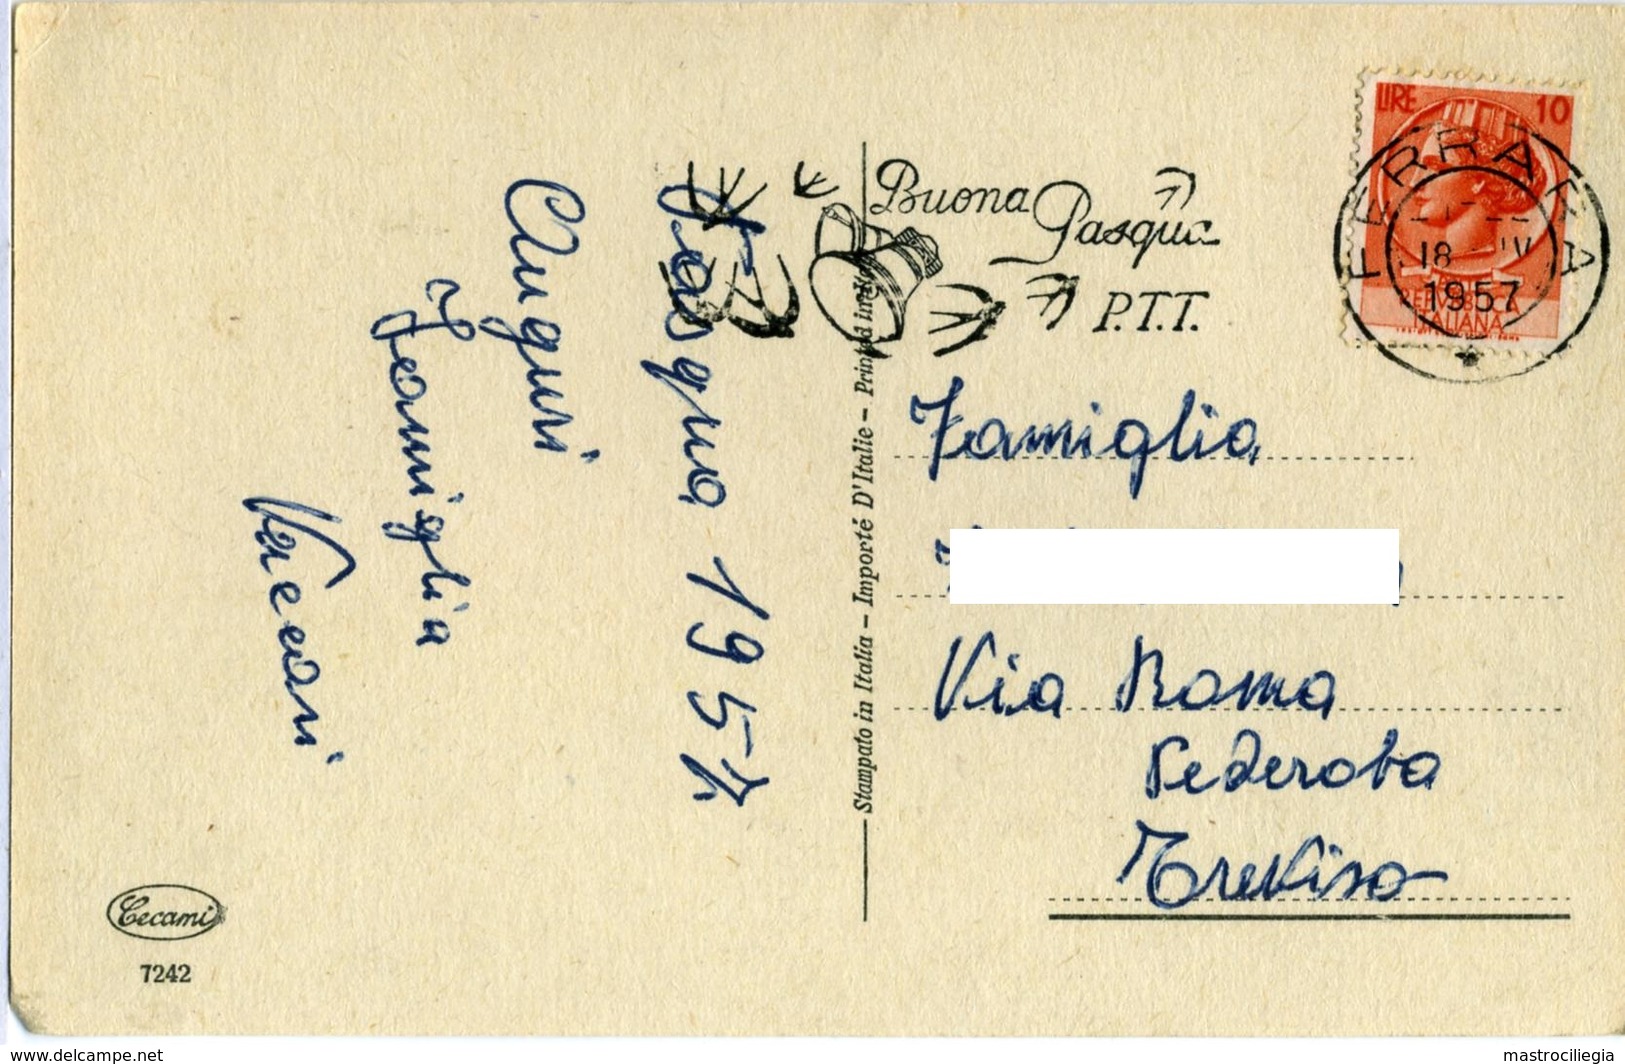 Pasqua 1957
Auguri
Famiglia
Vaccari
Buona
Pasqua
P.T.T.
LIRE 10
FERRARA
18 IV
1957
REPVBBLICA
ITALIANA
Stampato in Italia - Importé D'Italie - Printed in Italy
Famiglia
Via Roma
Pederoba
Treviso
Cecami
7242
www.delcampe.net
mastrociliegia